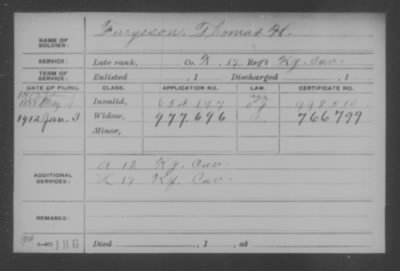 NAME OF SOLDIER: Furgsson, Thomas H.
SERVICE: Late rank, Co. K, 17 Reg't Ky. Cav.
TERM OF SERVICE: Enlisted , 1 Discharged , 1
DATE OF FILING. CLASS. APPLICATION NO. LAW. CERTIFICATE NO.
Invalid, 654197
1912 Jan. 3 Widow, 977696 a 766799
Minor,
ADDITIONAL SERVICES: A 12 Ky. Cav.
L 17 Ky. Cav.
REMARKS:
Died , 1 , at